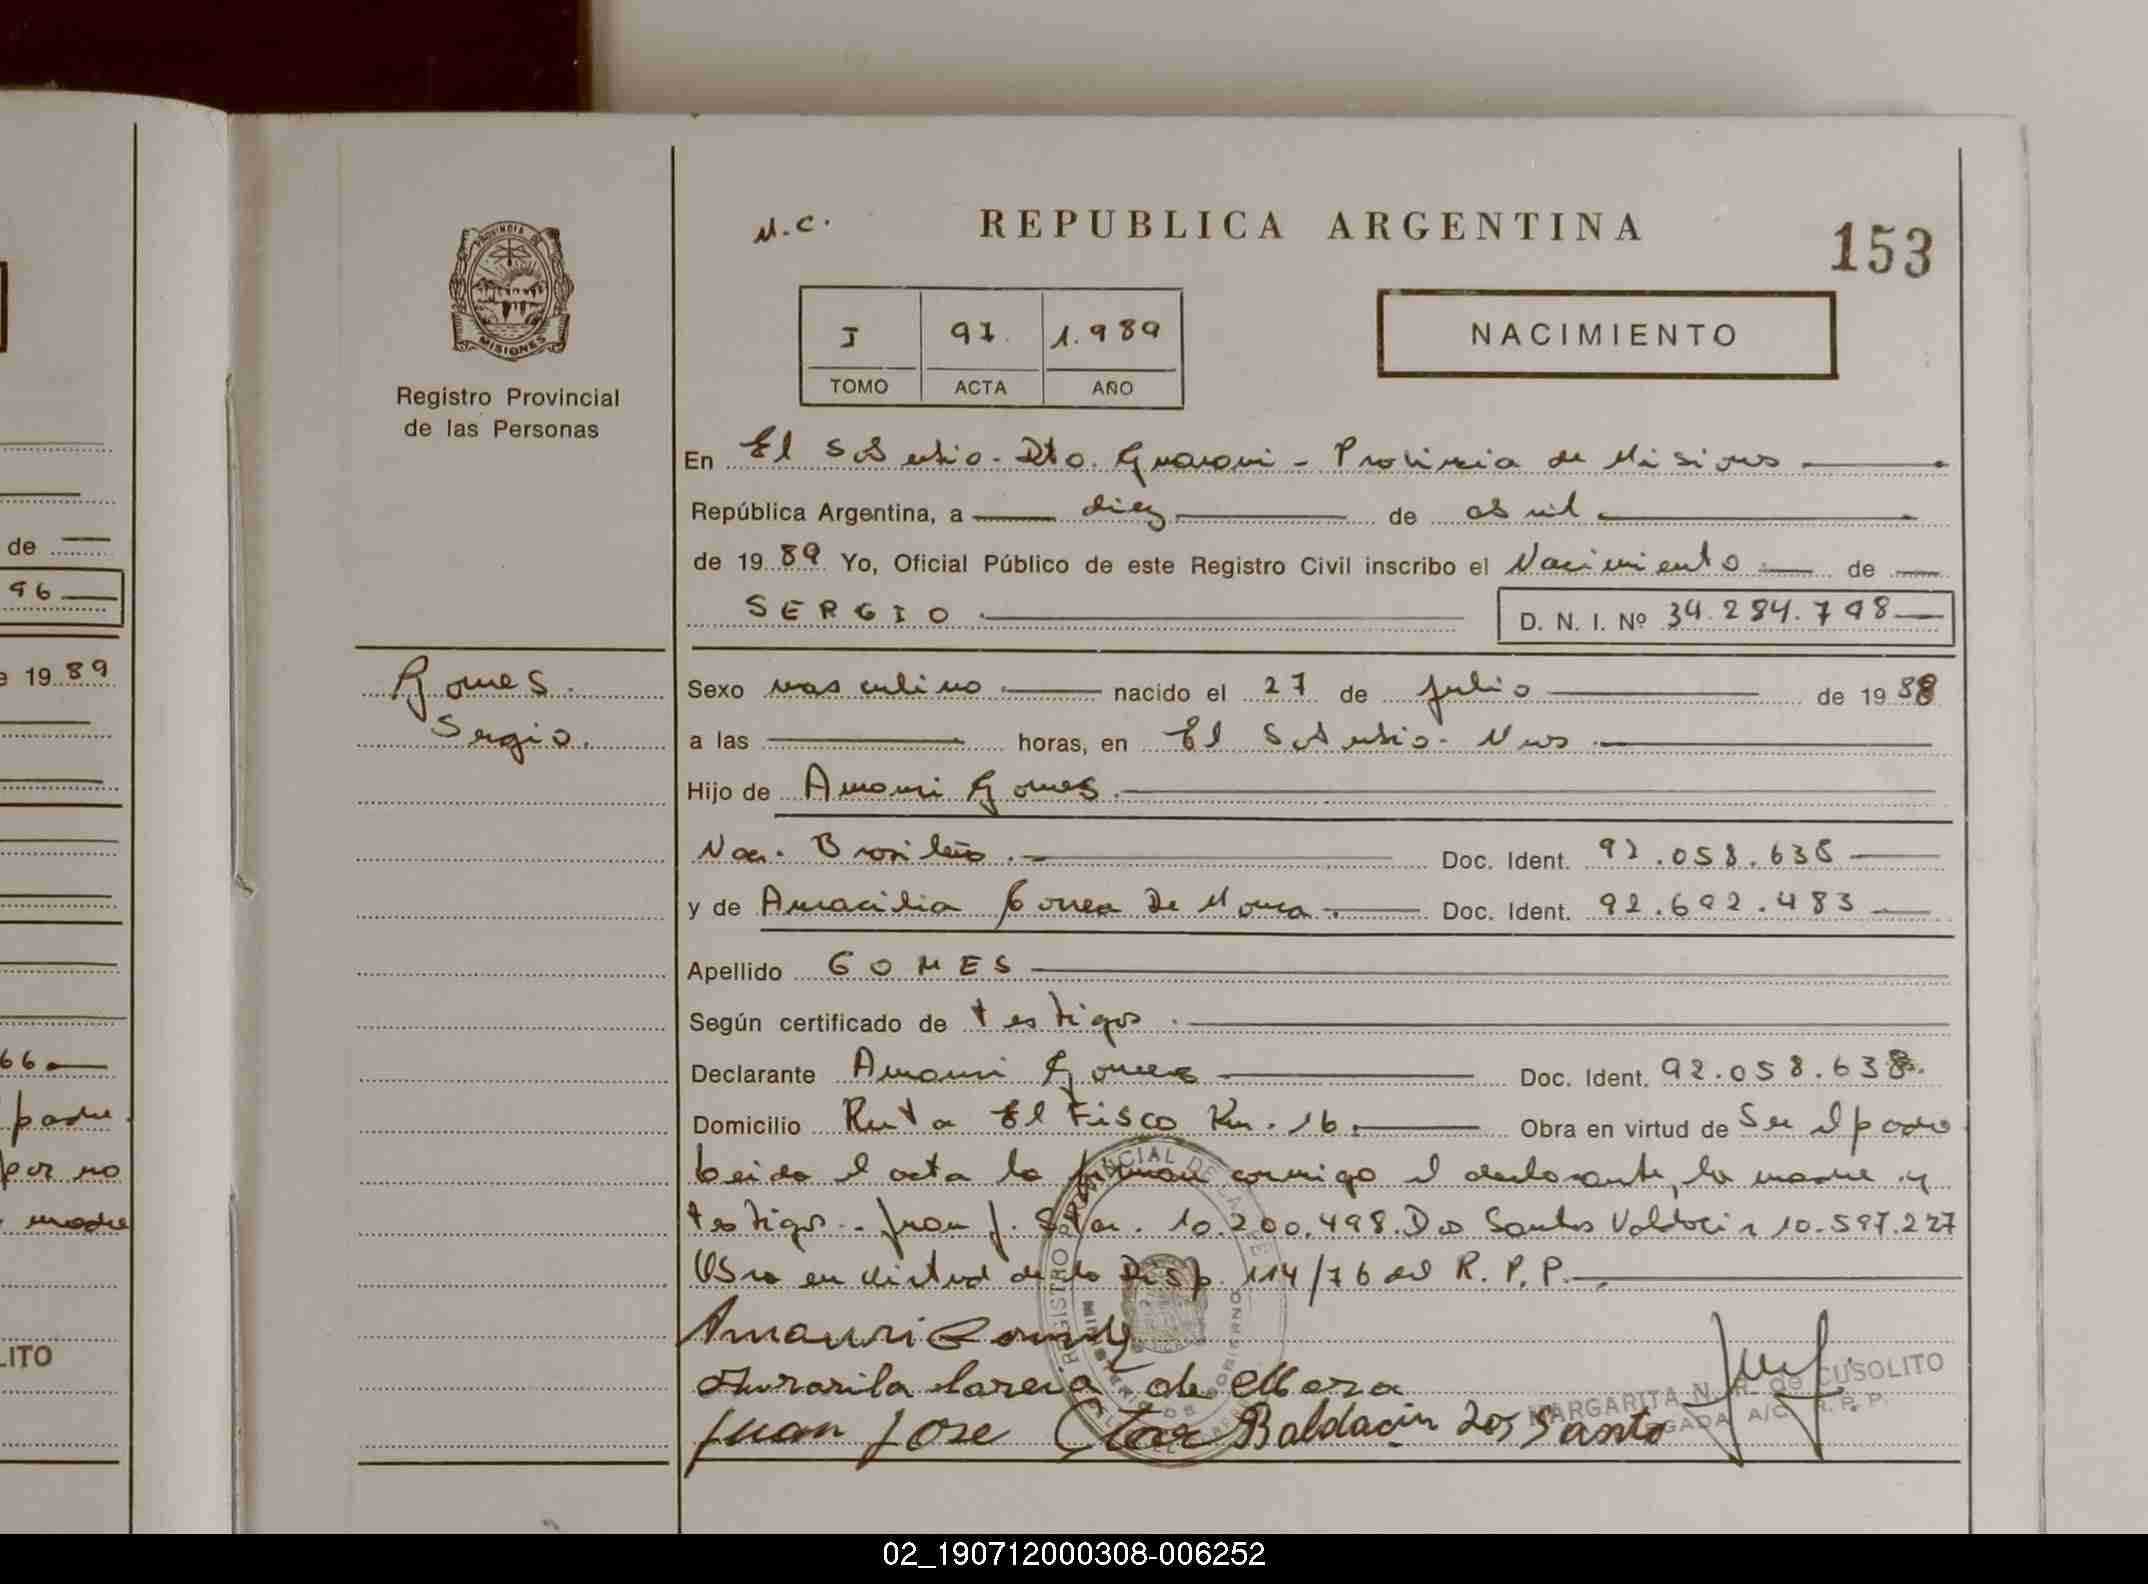 de
96
e 19 89
66
padre.
por no
madre
LITO
PROVINCIA DE
MISIONES
Registro Provincial
de las Personas
Gomes
Sergio.
N.C.
REPUBLICA ARGENTINA
153
I 97. 1.989
TOMO ACTA AÑO
NACIMIENTO
En El Soberbio - Dto. Guarani - Provincia de Misiones
República Argentina, a diez de abril
de 19 89 Yo, Oficial Público de este Registro Civil inscribo el Nacimiento de
SERGIO D. N. I. Nº 34.284.798
Sexo masculino nacido el 27 de julio de 19 88
a las horas, en El Soberbio - Mnes
Hijo de Amauri Gomes.
Nac. Brasileño. Doc. Ident. 92.058.638
y de Doc. Ident. 92.692.483
Apellido GOMES
Según certificado de testigos.
Declarante Amauri Gomes Doc. Ident. 92.058.638.
Domicilio Ruta El Fisco Km. 16. Obra en virtud de Ser el padre
Leida el acta la firman conmigo el declarante, la madre y
testigos.- Juan J. 10.200.498. Dos Santos 10.597.227
Obra en virtud de la Disp. 114/76 del R.P.P.
Amauri Gomes
de
Juan Jose Baldacin Dos Santo
MARGARITA N. R. de CUSOLITO
A/C. R.P.P.
REGISTRO PROVINCIAL DE LAS PER
02_190712000308-006252